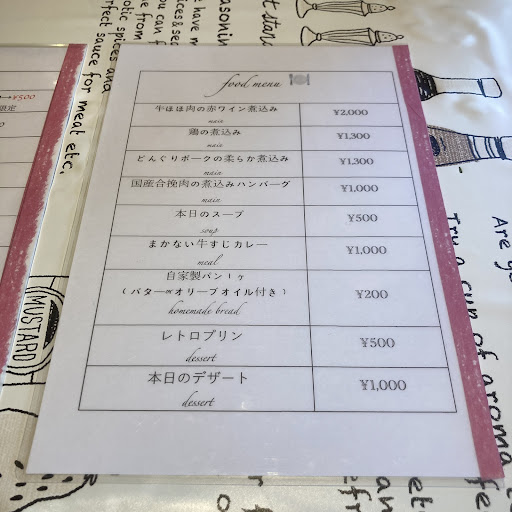 food menu
牛ほほ肉の赤ワイン煮込み ¥2,000
main
鶏の煮込み ¥1,300
main
どんぐりポークの柔らか煮込み ¥1,300
main
国産合挽肉の煮込みハンバーグ ¥1,000
main
本日のスープ ¥500
soup
まかない牛すじカレー ¥1,000
meal
自家製パン1ヶ
(バターorオリーブオイル付き) ¥200
homemade bread
レトロプリン ¥500
dessert
本日のデザート ¥1,000
dessert
¥500
限定
MUSTARD
sauce for meat etc.
spices and
have m
Try a cup of aroma
Are yo